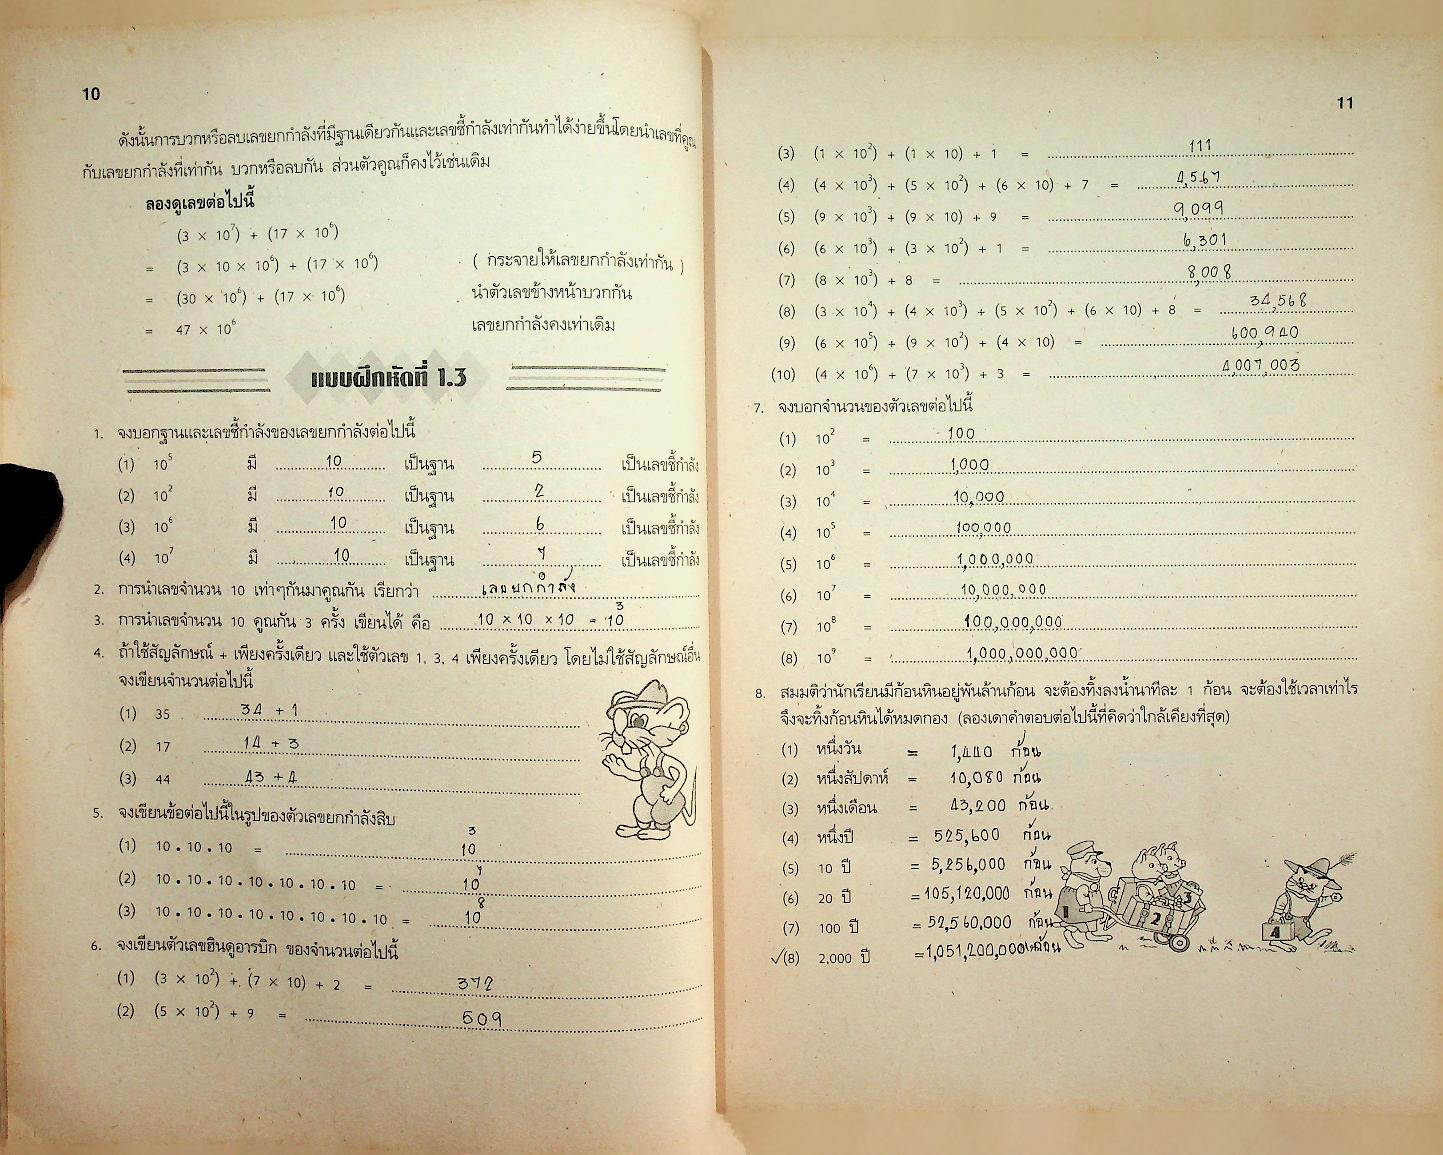 10
ดังนั้นการบวกหรือลบเลขยกกำลังที่มีฐานเดียวกันและเลขชี้กำลังเท่ากันทำได้ง่ายขึ้นโดยนำเลขที่คูณ
กับเลขยกกำลังที่เท่ากัน บวกหรือลบกัน ส่วนตัวคูณก็คงไว้เช่นเดิม
ลองดูเลขต่อไปนี้
(3 × 10⁷) + (17 × 10⁶)
= (3 × 10 × 10⁶) + (17 × 10⁶) ( กระจายให้เลขยกกำลังเท่ากัน )
= (30 × 10⁶) + (17 × 10⁶) นำตัวเลขข้างหน้าบวกกัน
= 47 × 10⁶ เลขยกกำลังคงเท่าเดิม
แบบฝึกหัดที่ 1.3
1. จงบอกฐานและเลขชี้กำลังของเลขยกกำลังต่อไปนี้
(1) 10⁵ มี 10 เป็นฐาน 5 เป็นเลขชี้กำลัง
(2) 10² มี 10 เป็นฐาน 2 เป็นเลขชี้กำลัง
(3) 10⁶ มี 10 เป็นฐาน 6 เป็นเลขชี้กำลัง
(4) 10⁷ มี 10 เป็นฐาน 7 เป็นเลขชี้กำลัง
2. การนำเลขจำนวน 10 เท่าๆกันมาคูณกัน เรียกว่า เลขยกกำลัง
3. การนำเลขจำนวน 10 คูณกัน 3 ครั้ง เขียนได้ คือ 10 × 10 × 10 = 10³
4. ถ้าใช้สัญลักษณ์ + เพียงครั้งเดียว และใช้ตัวเลข 1, 3, 4 เพียงครั้งเดียว โดยไม่ใช้สัญลักษณ์อื่น
จงเขียนจำนวนต่อไปนี้
(1) 35 34 + 1
(2) 17 14 + 3
(3) 44 43 + 4
5. จงเขียนข้อต่อไปนี้ในรูปของตัวเลขยกกำลังสิบ
(1) 10 . 10 . 10 = 10³
(2) 10 . 10 . 10 . 10 . 10 . 10 . 10 = 10⁷
(3) 10 . 10 . 10 . 10 . 10 . 10 . 10 . 10 = 10⁸
6. จงเขียนตัวเลขฮินดูอารบิก ของจำนวนต่อไปนี้
(1) (3 × 10²) + (7 × 10) + 2 = 372
(2) (5 × 10²) + 9 = 509
11
(3) (1 × 10²) + (1 × 10) + 1 = 111
(4) (4 × 10³) + (5 × 10²) + (6 × 10) + 7 = 4,567
(5) (9 × 10³) + (9 × 10) + 9 = 9,099
(6) (6 × 10³) + (3 × 10²) + 1 = 6,301
(7) (8 × 10³) + 8 = 8,008
(8) (3 × 10⁴) + (4 × 10³) + (5 × 10²) + (6 × 10) + 8 = 34,568
(9) (6 × 10⁵) + (9 × 10²) + (4 × 10) = 600,940
(10) (4 × 10⁶) + (7 × 10³) + 3 = 4,007,003
7. จงบอกจำนวนของตัวเลขต่อไปนี้
(1) 10² = 100
(2) 10³ = 1,000
(3) 10⁴ = 10,000
(4) 10⁵ = 100,000
(5) 10⁶ = 1,000,000
(6) 10⁷ = 10,000,000
(7) 10⁸ = 100,000,000
(8) 10⁹ = 1,000,000,000
8. สมมติว่านักเรียนมีก้อนหินอยู่พันล้านก้อน จะต้องทิ้งลงน้ำนาทีละ 1 ก้อน จะต้องใช้เวลาเท่าไร
จึงจะทิ้งก้อนหินได้หมดกอง (ลองเดาคำตอบต่อไปนี้ที่คิดว่าใกล้เคียงที่สุด)
(1) หนึ่งวัน = 1,440 ก้อน
(2) หนึ่งสัปดาห์ = 10,080 ก้อน
(3) หนึ่งเดือน = 43,200 ก้อน
(4) หนึ่งปี = 525,600 ก้อน
(5) 10 ปี = 5,256,000 ก้อน
(6) 20 ปี = 105,120,000 ก้อน
(7) 100 ปี = 52,560,000 ก้อน
✓(8) 2,000 ปี = 1,051,200,000 ก้อน
1
2
3
4